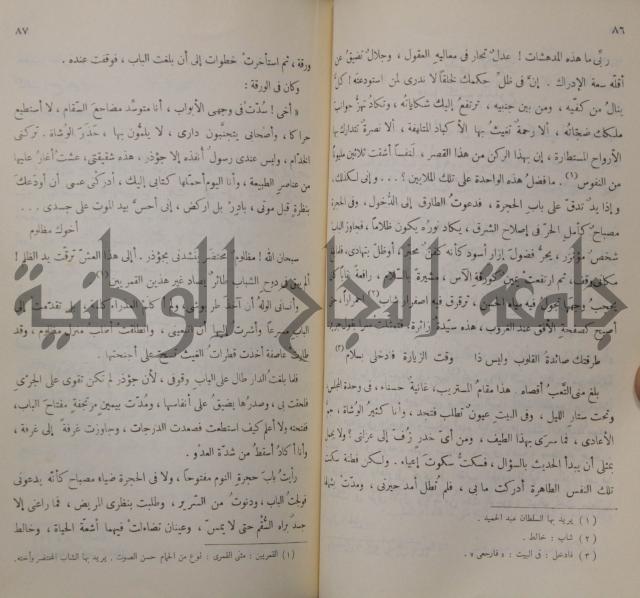 ٨٦
ربّى ما هذه المدهشات ! عدلٌ تحار فى معاليه العقول ، وجلالٌ تضيق عن
أقلّه سعة الإدراك . إنّ فى ظلّ حكمك لخلقًا لا ندرى لمن استودعته ! كلٌّ
ينال من كفّيه ، ومن بين جنبيه ، ترتفع إليك شكاياته ، وتكاد تهزّ جوانب
ملكك ضجّاته ، ألا رحمة تغيث بها الأكباد المتلهفة ، ألا نصرة تتدارك بها
الأرواح المستطارة ، إن بهذا الركن من هذا القصر ، لنفسًا أشقت ثلاثين مليونًا
من النفوس (١) . ما فضل هذه الواحدة على تلك الملايين ؟ ... وإنى لكذلك ،
وإذا يدٌ تدقّ على باب الحجرة ، فدعوتُ الطارق إلى الدخول ، وفى الحجرة
مصباح كآمل الحرّ فى إصلاح الشرق ، يكاد نوره يكون ظلامًا ، فجاوز الباب
شخص مؤتزر ، يجرّ فضول إزار أسود كأنه
مكانى وقف ، ثم ارتفعت كورقة الآس ، مشيرة بالسّلام ،
يحجب وجهها تجول فيه مياه الحسن ، ترقرق فيه اصفرار شاب (٢) احمرارًا ،
أصبح صفحة الأفق عند الغروب ، هذه سيّدة زائرة ،
طرقتك صائدة القلوب وليس ذا وقت الزيارة فادخلى بسلام (٣)
بلغ منى التّعب أقصاه . هذا مقام المستريب ، غانية حسناء ، فى وحدة المجلس
وتحت ستار الليل ، وفى البيت عيون تطلب فتجد ، وأنا كثير الوشاة ،
الأعادى ، فما سرى بهذا الطيف ، ومن أىّ خدرٍ زُفّ إلى عزلتى ؟ ولا يجمل
بمثلى أن يبدأ الحديث بالسؤال ، فسكتّ سكوت إعياء . ولكن فطنة سكنت
تلك النفس الطاهرة أدركت ما بى ، فلم تُطل أمد حيرتى ، ومدّت
(١) يريد بها السلطان عبد الحميد .
(٢) شاب : خالط .
(٣) فادخلى : فى البيت : « فارجعى » .
٨٧
ورقة ، ثم استأخرتْ خطوات إلى أن بلغت الباب ، فوقفت عنده .
وكان فى الورقة :
« أخى ! سُدّت فى وجهى الأبواب ، أنا متوسّد مضاجع السّقام ، لا أستطيع
حراكا ، وأصحابى يتجنّبون دارى ، لا يلمّون بها ، حَذَرَ الوُشاة . تركنى
الخدّام ، وليس عندى رسول أنفذه إلا جؤذر ، هذه شقيقتى ، عشتُ أغار عليها
من عناصر الطبيعة ، وأنا اليوم أحمّلها كتابى إليك ، أدركنى عسى أن أودّعك
بنظرةٍ قبل موتى ، بادِرْ بل اركض ، إنى أحسّ بيد الموت على جسدى ...
أخوك مظلوم
سبحان الله ! مظلوم محتضر ينشدنى بجؤذر . إلى هذا العشّ ترقّت يد الظلم !
ألم يبق فى دوح الشباب طائرٌ يُصاد غير هذين القمريين (١)
وأنسانى الوله أن آخذ طربوشى ،
الباب مسرعًا وأشرت إليها أن اتبعينى ، وانطلقت أطلب منزل مظلوم ، وقد
طابت عاصفة أخذت قطرات الغيث تسبح على أجنحتها .
فلما بلغت الدار طال على الباب وقوفى ، لأن جؤذر لم تكن تقوى على الجرى
فلحقت بى ، وصدرها يضيق على أنفاسها ، ومُدّت بيمين مرتجفةٍ مفتاحَ الباب ،
ففتحته ولا أعلم كيف استطعت فصعدت الدرجات ، وجاوزت غرفة إلى غرفة ،
وأنا أكاد أسقط من شدّة العدو .
رأيتُ بابَ حجرة النوم مفتوحًا ، ولا فى الحجرة ضياء مصباح كأنّه يدعونى
فولجتُ الباب ، ودنوت من السّرير ، وطلبت بنظرى المريض ، فما راعنى إلا
جسد براه السُّقم حتى لا يمسّ ، وعينان تضاءلت فيهما أشعّة الحياة ، وخالط
(١) القمريين : مثنى القمرى : نوع من الحمام حسن الصوت . يريد بها الشاب المحتضر وأخته .
جامعة النجاح الوطنية